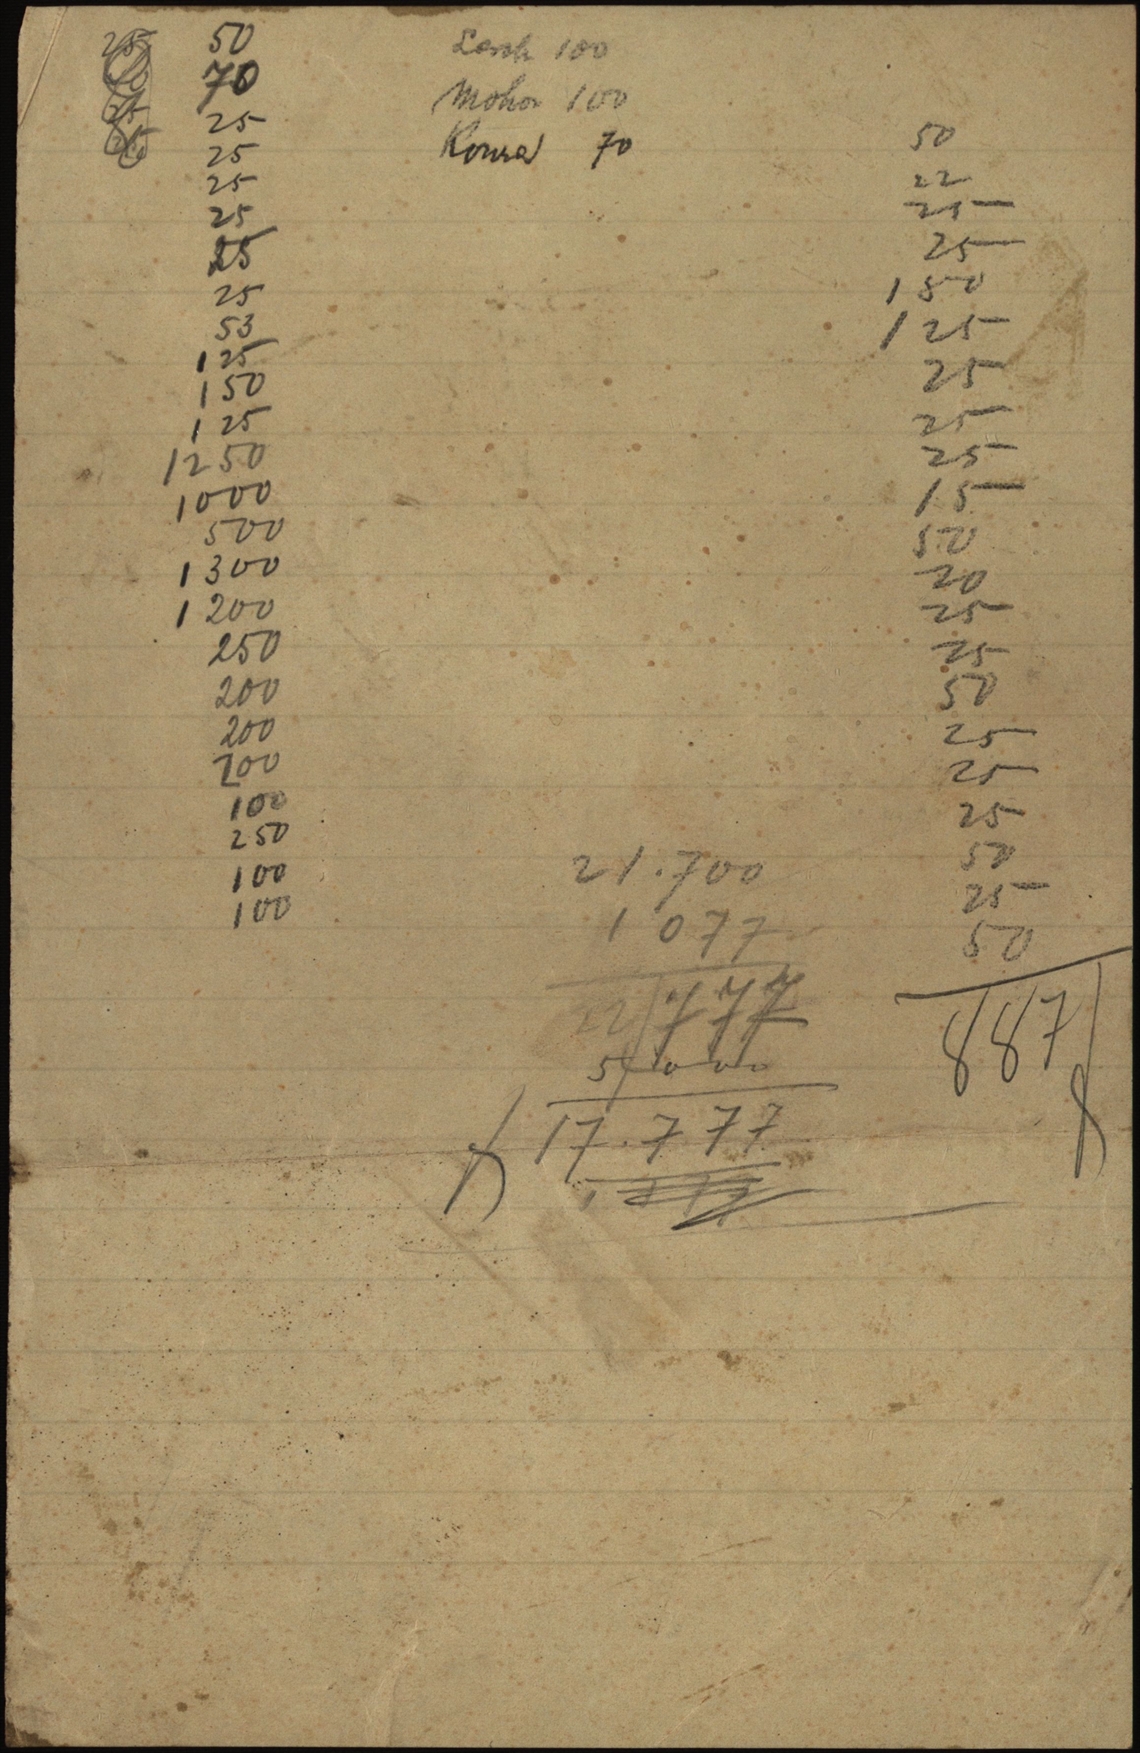 50
70
25
25
25
25
25
25
53
125
150
125
1250
1000
500
1300
1200
250
200
200
200
100
250
100
100
100
Mohor 100
70
50
22
25
25
150
125
25
25
25
15
50
20
25
25
50
25
25
25
50
25
50
887
21.700
1077
22777
5000
17.777